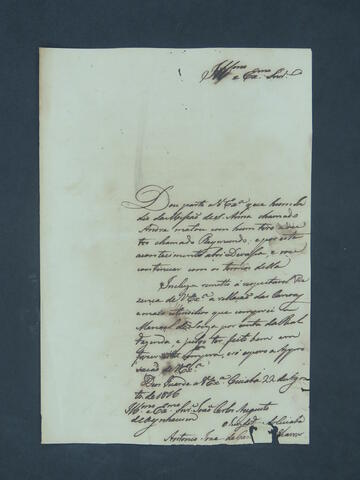 Illmo e Exmo Snr.
Dou parte a V Exa que hum In
dio da Missão de S. Anna chamado
André matou com hum tiro a ou
tro chamado Raymundo, e por este
acontecimento abri Devaça, e vou
continuar com os termos della
Incluza remeto á respeitavel Pre
zença de V Exa a rellação das
e mais utencilios que comprei a
Manoel de Souza por conta da Real
Fazenda, e julgo ter feito bem em
fazer esta compra, e só espero a Appro
vação de V Exa
Deos Guarde a V Exa Cuiabá 22 de Agos
to de 1816
Illmo e Exmo Snr. João Carlos Augusto
de Oynhausen
Antonio Joze de